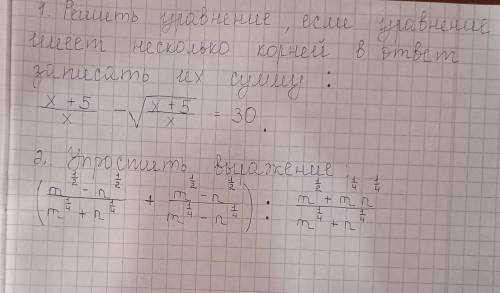 1. Решить уравнение, если уравнение
имеет несколько корней в ответ
записать их сумму :
\frac{x+5}{x} - \sqrt{\frac{x+5}{x}} = 30.
2. Упростить выражение :
\left(\frac{m^{\frac{1}{2}} - n^{\frac{1}{2}}}{m^{\frac{1}{4}} + n^{\frac{1}{4}}} + \frac{m^{\frac{1}{2}} - n^{\frac{1}{2}}}{m^{\frac{1}{4}} - n^{\frac{1}{4}}}\right) : \frac{m^{\frac{1}{2}} + m^{\frac{1}{4}} n^{\frac{1}{4}}}{m^{\frac{1}{4}} + n^{\frac{1}{4}}}